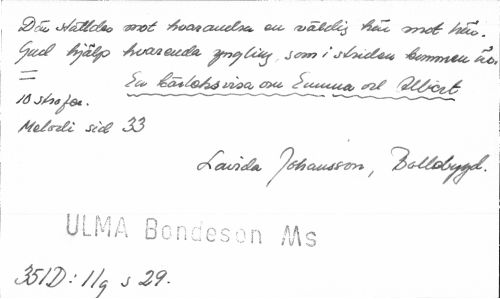 Där ställdes mot hvarandra en väldig här mot här.
Gud hjälp hvarenda yngling, som i striden kommen är.
=
En kärleksvisa om Emma och Albert
10 strofer.
Melodi sid 33
Lovisa Johansson, Bollebygd.
ULMA Bondeson Ms
351D: 11q s 29.